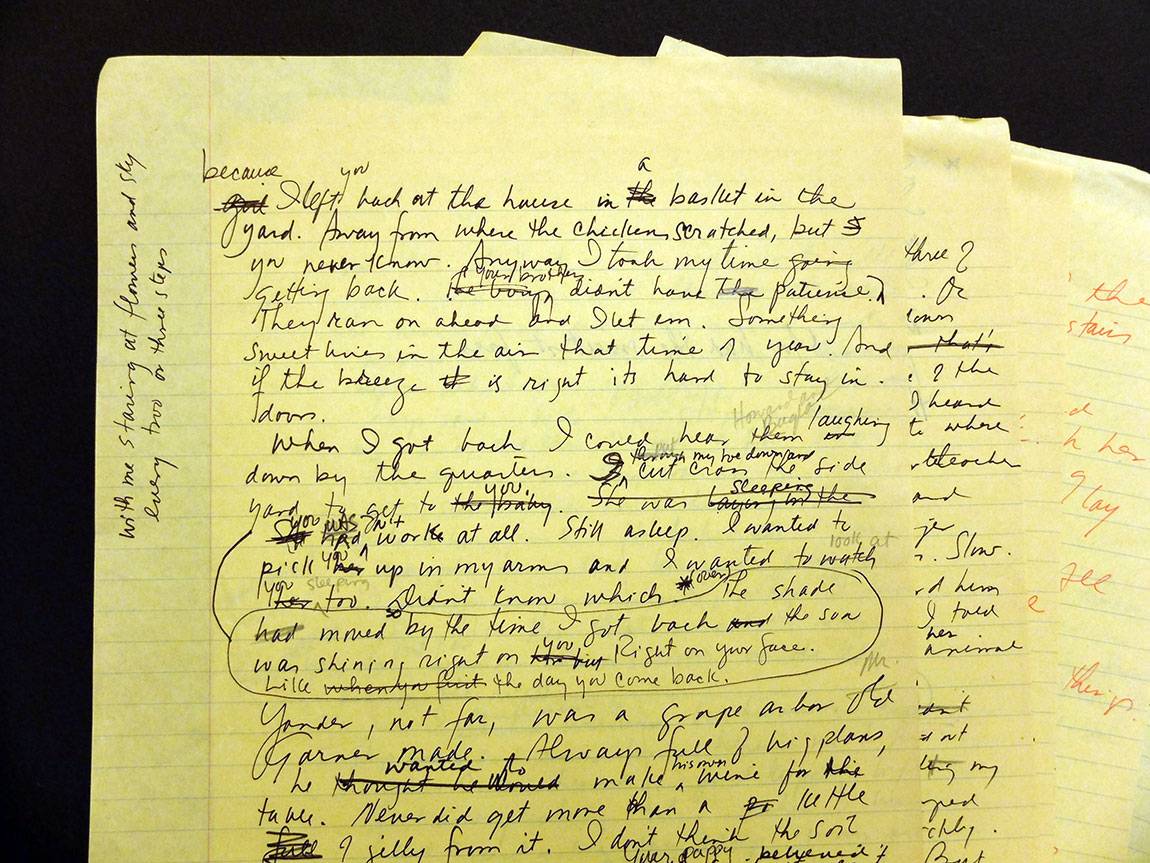 with me staring at flowers and sky
every two or three steps
because you a
I left back at the house in the basket in the
yard. Away from where the chickens scratched, but
you never know. Anyway I took my time going
getting back. The boys your brothers didn't have the patience,
They ran on ahead and I let em. Something
sweet lives in the air that time of year. And
if the breeze is right its hard to stay in
doors.
Howard and Buglar
When I got back I could hear them laughing
down by the quarters. I cut cross the side
yard to get to the baby you. She was sleeping
work at all. Still asleep. I wanted to
pick her you up in my arms and I wanted to watch look at
you her sleeping too. Didn't know which. The shade
had moved by the time I got back and the sun
was shining right on you Right on your face.
Like when you first the day you come back.
Yonder, not far, was a grape arbor Old
Garner made. Always full of big plans,
he thought he would wanted to make his own wine for his
table. Never did get more than a kettle
full of jelly from it. I don't think the soil
Your pappy believed it
three?
. Or
that's
of the
I heard
to where
teacher
and
Slow.
him
I told
her
animal
out
my
But
the
stairs
her
lay
see
things